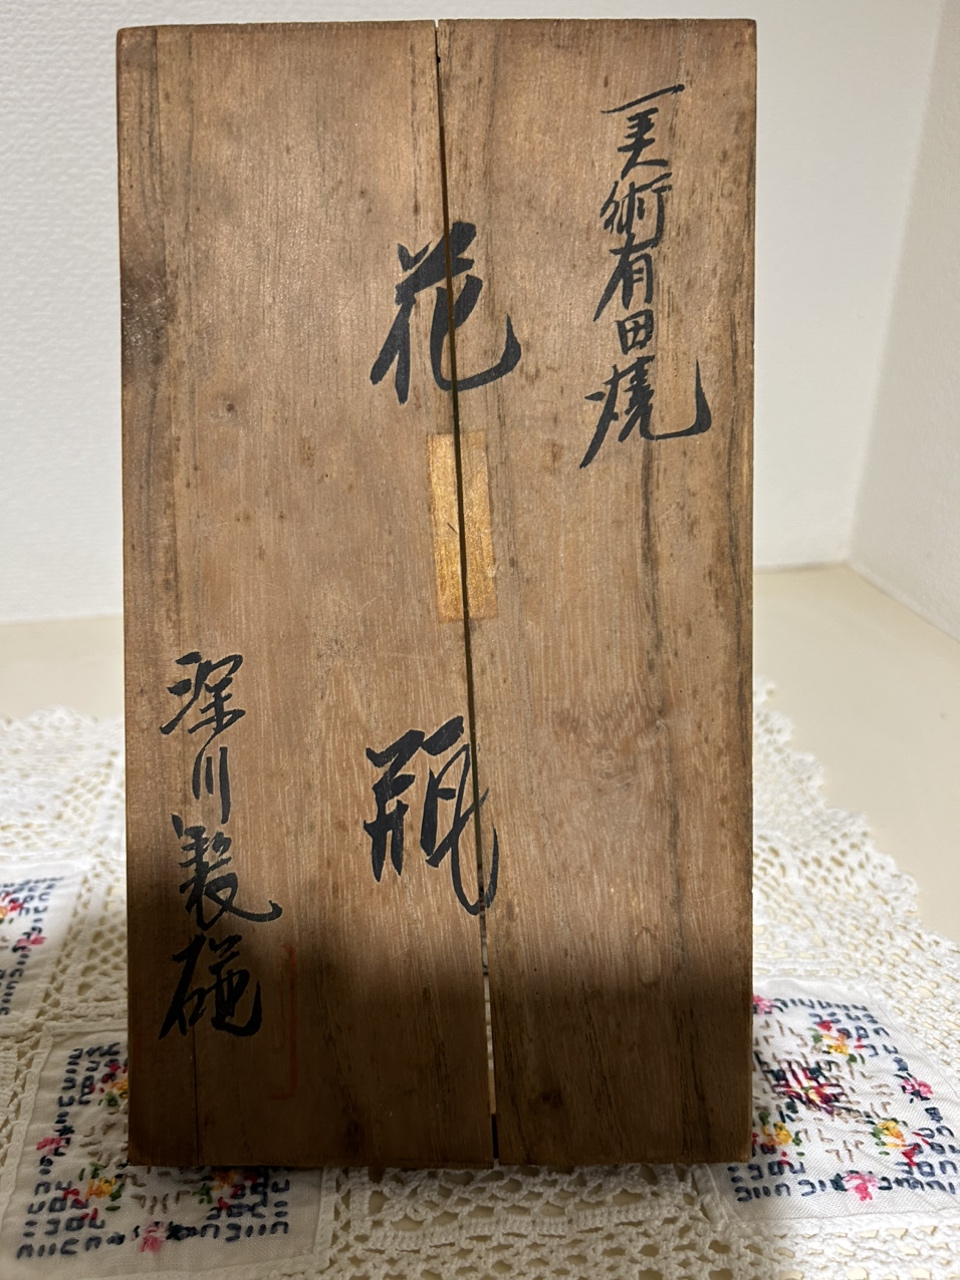 美術有田焼
花瓶
深川製磁